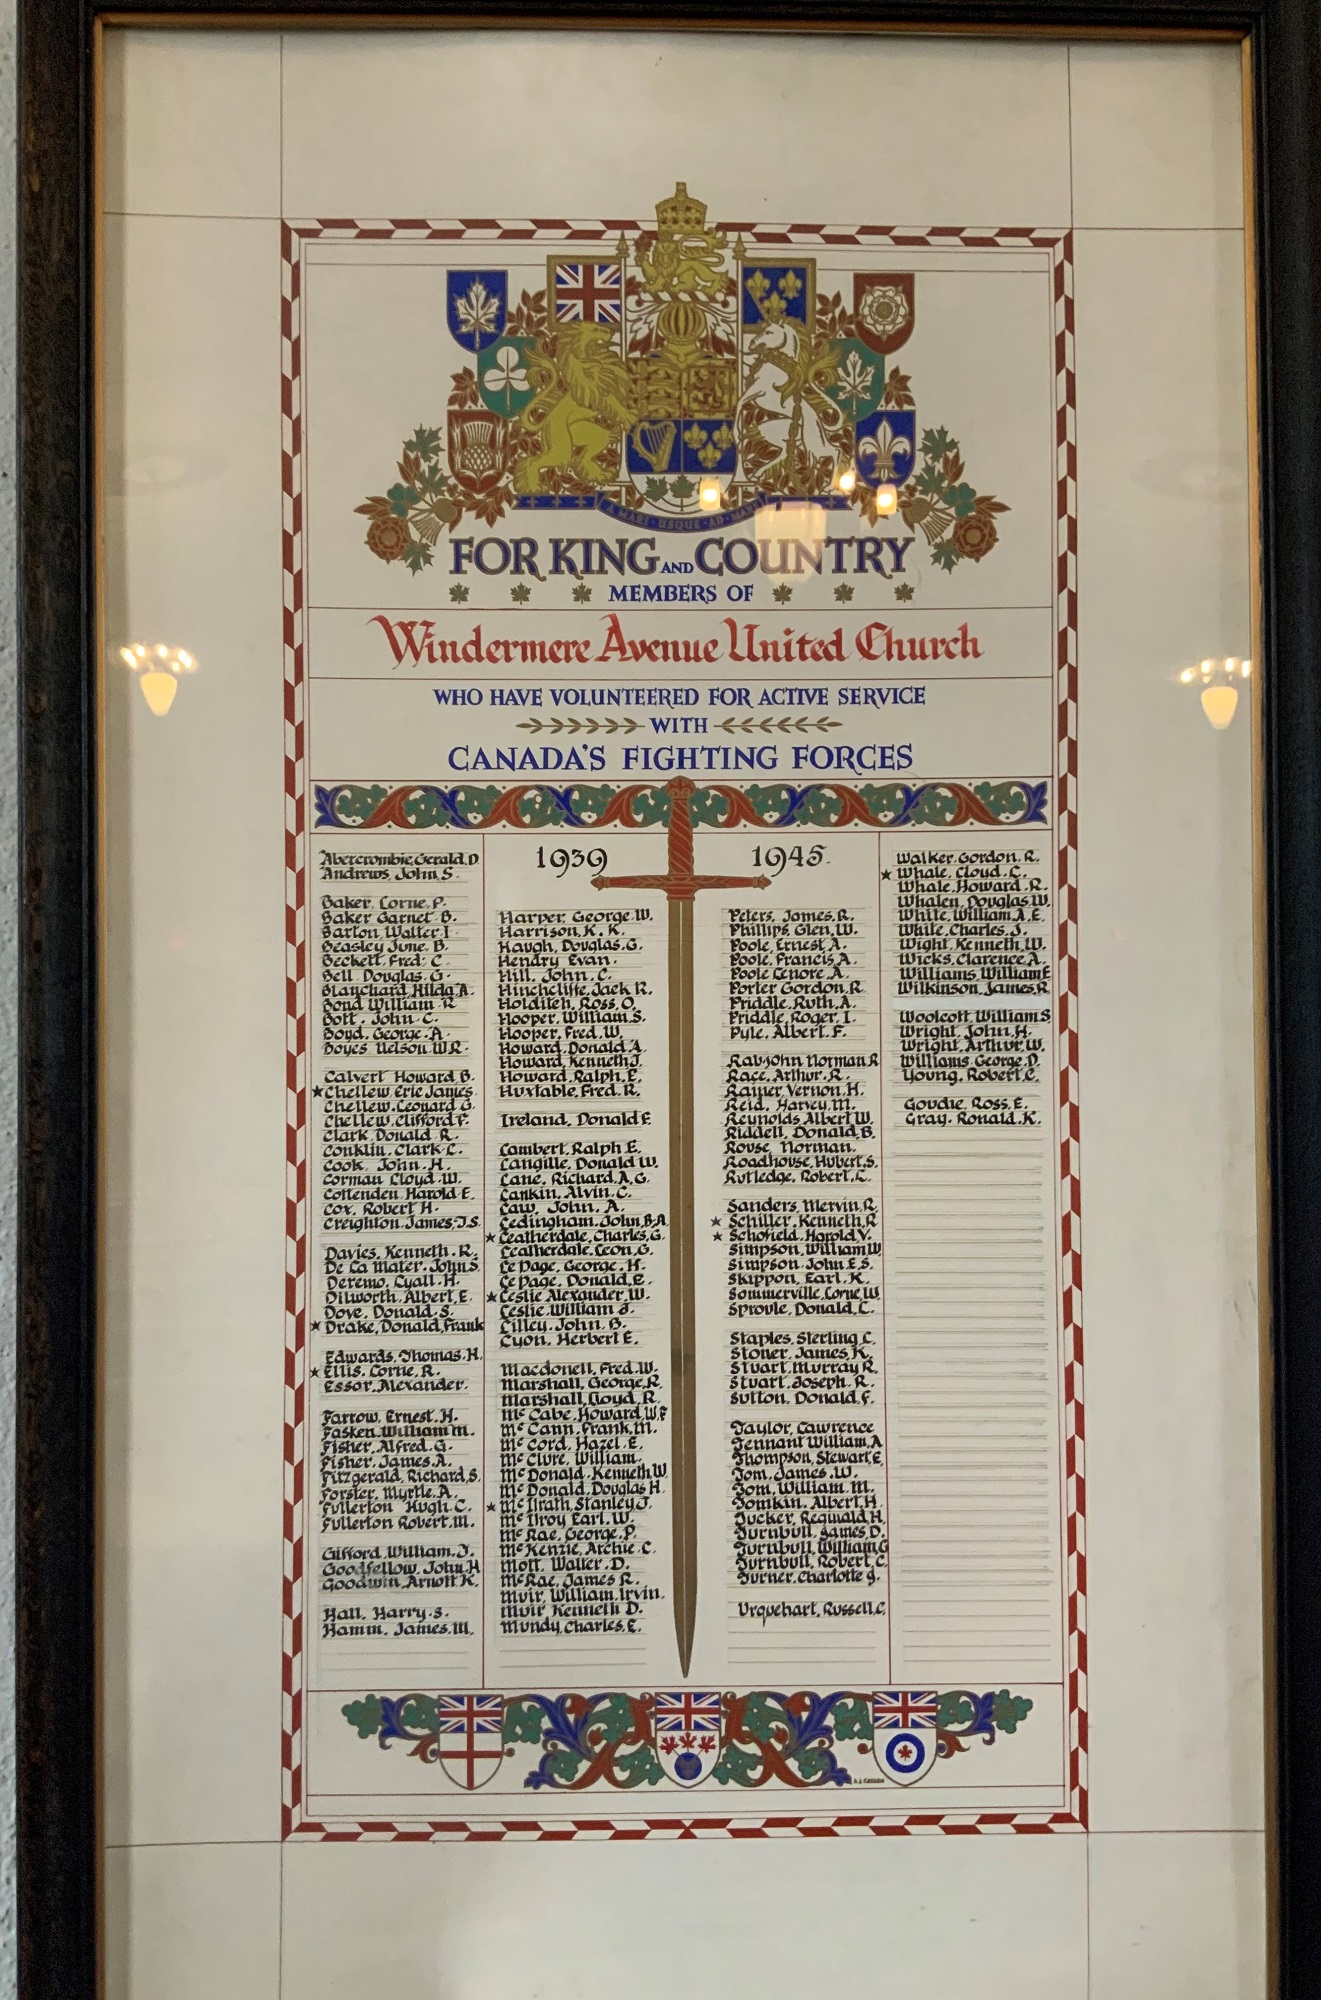 A MARI USQUE AD MARE
FOR KING AND COUNTRY
MEMBERS OF
Windermere Avenue United Church
WHO HAVE VOLUNTEERED FOR ACTIVE SERVICE
WITH
CANADA'S FIGHTING FORCES
1939 1945
Abercrombie, Gerald. D
Andrews, John. S.
Baker, Lorne. P.
Baker Garnet. B.
Barton, Walter I
Beasley June. B.
Beckett, Fred. C
Bell, Douglas. G.
Blanchard, Hilda. A.
Bond William R
Bott, John. C.
Boyd, George. A.
Boyes Nelson. W. R.
Calvert Howard B.
★ Chellew, Eric James.
Chellew. Leonard G.
Chellew, Clifford F.
Clark, Donald. R.
Conklin. Clark. C.
Cook, John. H.
Corman Cloyd. W.
Cottenden Harold E.
Cox, Robert H.
Creighton. James, J. S.
Davies, Kenneth. R.
De La Mater. John S.
Deremo, Lyall. H.
Dilworth, Albert, E.
Dove, Donald. S.
★ Drake, Donald, Frank
Edwards, Thomas. H.
★ Ellis, Lorne, R.
Essar, Alexander.
Farrow, Ernest. H.
Fasken. William M.
Fisher, Alfred. G.
Fisher, James. A.
Fitzgerald, Richard, S.
Forster, Myrtle. A.
Fullerton Hugh. C.
Fullerton Robert. M.
Gifford, William. J.
Goodfellow, John. H
Goodwin, Arnott K.
Hall, Harry. S.
Hamm, James. M.
Harper, George. W.
Harrison. K. K.
Haugh, Douglas. G.
Hendry Evan.
Hill, John. C.
Hinchcliffe, Jack R.
Holditch, Ross, O.
Hooper, William. S.
Hooper, Fred. W.
Howard, Donald A.
Howard, Kenneth J.
Howard, Ralph. E.
Huxtable, Fred. R.
Ireland, Donald F.
Lambert, Ralph E.
Langille, Donald W.
Lane, Richard, A. G.
Lankin, Alvin. C.
Law, John. A.
Ledingham, John, B. A.
★ Leatherdale, Charles, G.
Leatherdale, Leon, G.
Le Page, George. H.
Le Page, Donald, E.
★ Leslie Alexander, W.
Leslie. William J.
Lilley, John. B.
Lyon, Herbert E.
Macdonell, Fred. W.
Marshall, George, R.
Marshall, Lloyd, R.
McCabe, Howard, W. F
McCann, Frank, M.
McCord, Hazel. E.
McClure, William.
McDonald, Kenneth. W.
McDonald, Douglas H.
★ McIlrath, Stanley J.
McIlroy Earl. W.
McRae, George. P.
McKenzie, Archie. C.
Mott, Walter. D.
McRae, James R.
Muir, William, Irvin.
Muir Kenneth D.
Mundy, Charles, E.
Peters, James. R.
Phillips, Glen, W.
Poole, Ernest, A.
Poole, Francis, A.
Poole Lenore. A.
Porter Gordon. R.
Priddle, Ruth. A.
Priddle, Roger, I.
Pyle, Albert, F.
Rabjohn Norman R
Race, Arthur. R.
Rainer, Vernon. H.
Reid, Harvey, M.
Reynolds Albert W.
Riddell, Donald, B.
Rouse, Norman.
Roadhouse, Hubert, S.
Rutledge, Robert, C.
Sanders, Mervin, R.
★ Schiller, Kenneth, R
★ Schofield, Harold, V.
Simpson, William W.
Simpson. John E. S.
Skippon, Earl. K.
Sommerville, Lorne, W.
Sproule, Donald, C.
Staples, Sterling, C.
Stoner, James, K.
Stuart, Murray R.
Stuart, Joseph. R.
Sutton, Donald, F.
Taylor, Lawrence
Tennant William, A
Thompson, Stewart, E.
Tom, James. W.
Tom, William, M.
Tomkin, Albert, H.
Tucker, Reginald, H.
Turnbull, James, D.
Turnbull, William, G
Turnbull, Robert, C.
Turner, Charlotte J.
Urquehart, Russell, C.
Walker, Gordon, R.
★ Whale, Cloud, C.
Whale, Howard. R.
Whalen, Douglas, W.
White, William, A. E.
White, Charles, J.
Wight, Kenneth, W.
Wicks, Clarence, A.
Williams, William E
Wilkinson, James. R
Woolcott, William S.
Wright, John, H.
Wright, Arthur, W.
Williams, George, D.
Young, Robert, C.
Goudie, Ross, E.
Gray, Ronald. K.